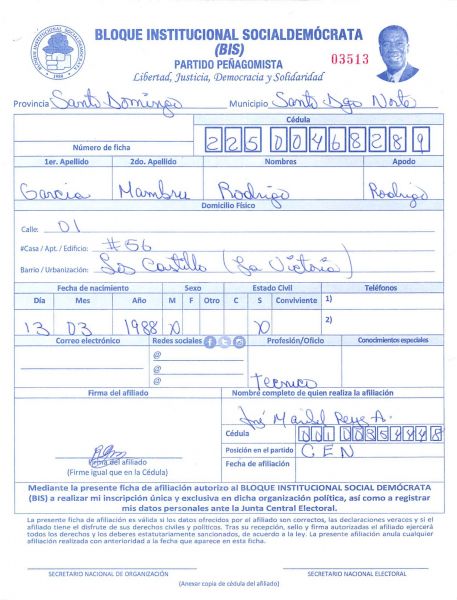 BLOQUE INSTITUCIONAL SOCIALDEMÓCRATA
(BIS)
PARTIDO PEÑAGOMISTA
03513
Libertad, Justicia, Democracia y Solidaridad
Provincia Santo Domingo Municipio Santo Dgo Norte
Cédula
Número de ficha 225 0046828 9
1er. Apellido 2do. Apellido Nombres Apodo
Garcia Mambru Rodrigo Rodrigo
Domicilio Físico
Calle: D1
#Casa / Apt. / Edificio: #56
Barrio / Urbanización: Los Castillo (La Victoria)
Fecha de nacimiento Sexo Estado Civil Teléfonos
Día Mes Año M F Otro C S Conviviente 1)
13 03 1988 X X 2)
Correo electrónico Redes sociales Profesión/Oficio Conocimientos especiales
@
@
@ Tecnico
Firma del afiliado Nombre completo de quien realiza la afiliación
José Reyes A.
Cédula
Posición en el partido CEN
Firma del afiliado
(Firme igual que en la Cédula)
Fecha de afiliación
Mediante la presente ficha de afiliación autorizo al BLOQUE INSTITUCIONAL SOCIAL DEMÓCRATA
(BIS) a realizar mi inscripción única y exclusiva en dicha organización política, así como a registrar
mis datos personales ante la Junta Central Electoral.
La presente ficha de afiliación es válida si los datos ofrecidos por el afiliado son correctos, las declaraciones veraces y si el
afiliado tiene el disfrute de sus derechos civiles y políticos. Tras su recepción, sello y firma autorizadas el afiliado ejercerá
todos los derechos y los deberes estatutariamente sancionados, de acuerdo a la ley. La presente afiliación anula cualquier
afiliación realizada con anterioridad a la fecha que aparece en esta ficha.
SECRETARIO NACIONAL DE ORGANIZACIÓN SECRETARIO NACIONAL ELECTORAL
(Anexar copia de cédula del afiliado)